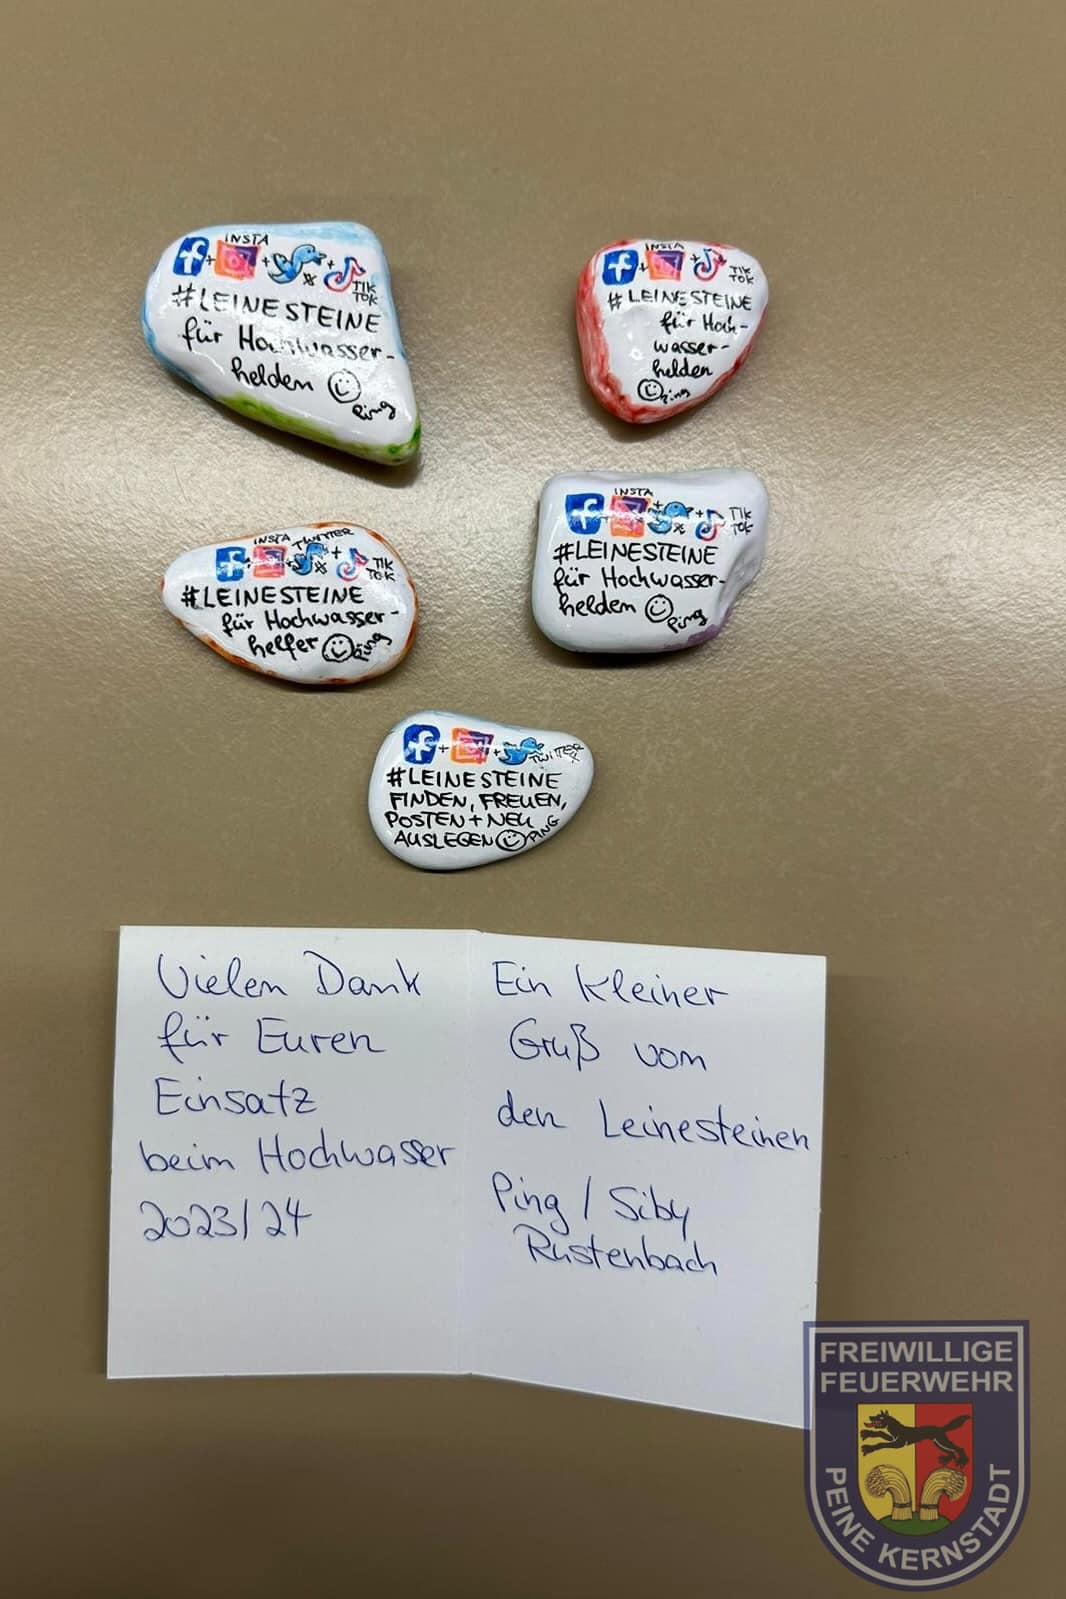 INSTA
TIK
TOK
#LEINESTEINE
für Hochwasser-
helden
Ping
INSTA
TIK
TOK
#LEINESTEINE
für Hoch-
wasser-
helden
Ping
INSTA TWITTER
X
TIK
TOK
#LEINESTEINE
für Hochwasser-
helfer
Ping
INSTA
X
TIK
TOK
#LEINESTEINE
für Hochwasser-
helden
Ping
TWITTER
X
#LEINESTEINE
FINDEN, FREUEN,
POSTEN + NEU
AUSLEGEN PING
Vielen Dank
für Euren
Einsatz
beim Hochwasser
2023/24
Ein kleiner
Gruß von
den Leinesteinen
Ping / Siby
Rustenbach
FREIWILLIGE
FEUERWEHR
PEINE KERNSTADT